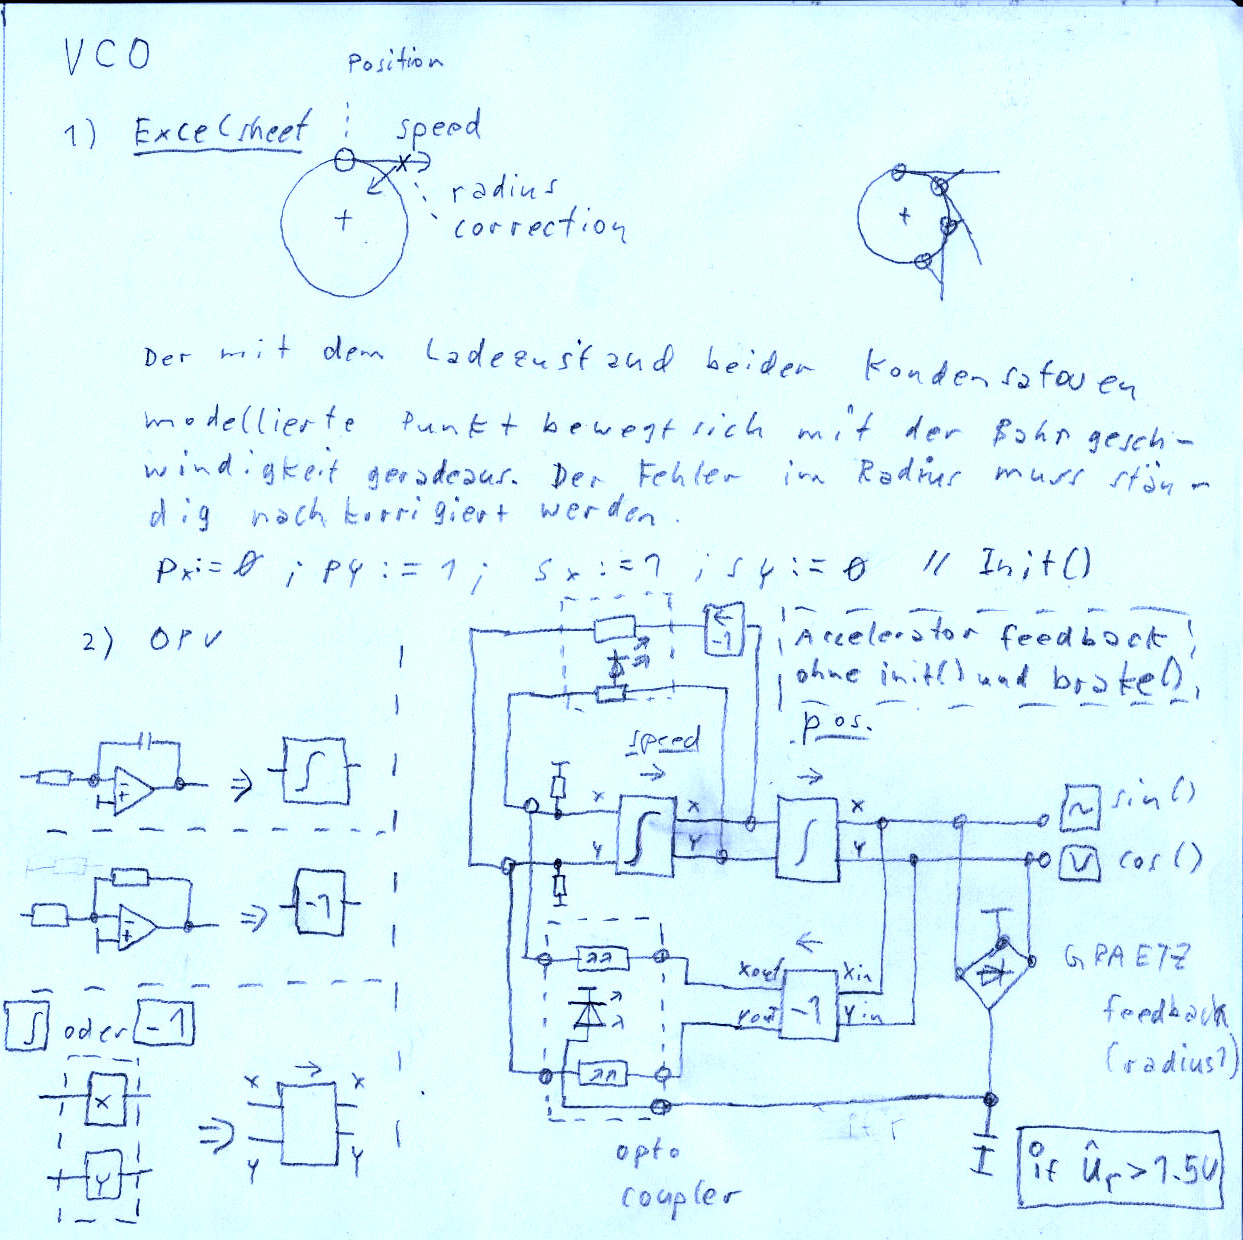 VCO
Position
1) Excelsheet
speed
radius
correction
Der mit dem Ladezustand beider Kondensatoren
modellierte Punkt bewegt sich mit der Bahngesch-
windigkeit geradeaus. Der Fehler im Radius muss stän-
dig nachkorrigiert werden.
Px:=0 ; Py:=1 ; Sx:=1 ; Sy:=0 // Init()
2) OPV
-1
Accelerator feedback
ohne init() und brake()
speed
pos.
x
y
x
y
x
y
sin()
cos()
⇒ ∫
⇒ -1
∫ oder -1
x
y
⇒
x
x
y
y
xout
xin
yout
yin
-1
GRAETZ
feedback
(radius?)
opto
coupler
if Ûr > 1.5V